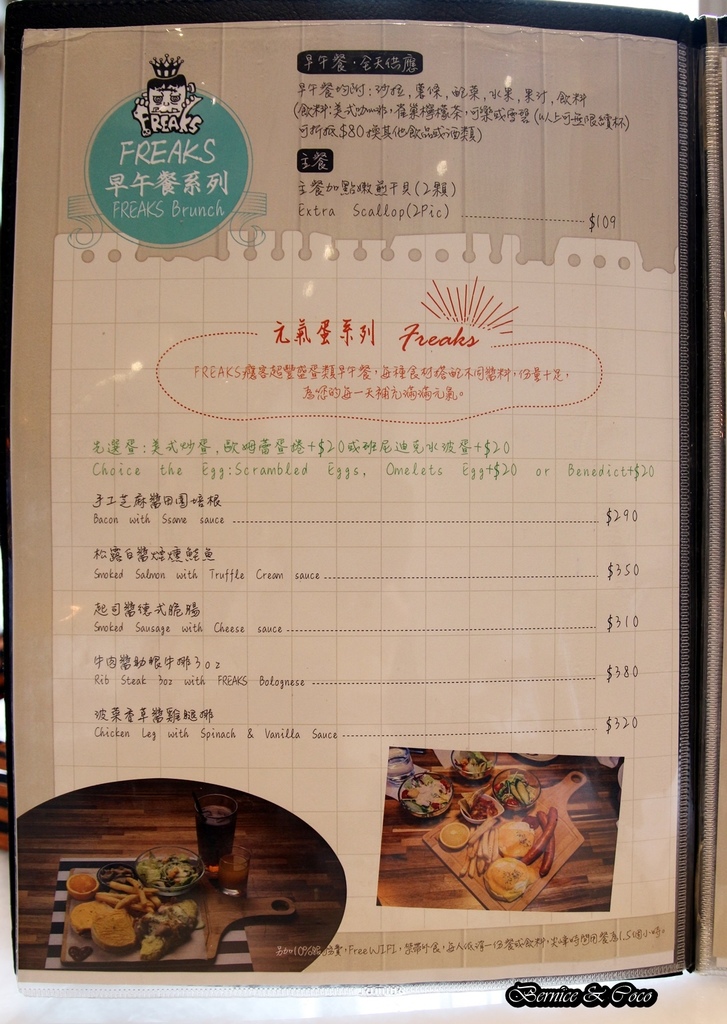 FREAKS
FREAKS
早午餐系列
FREAKS Brunch
早午餐．全天供應
早午餐均附：沙拉，薯條，配菜，水果，果汁，飲料
(飲料：美式咖啡，雀巢檸檬茶，可樂或雪碧 (以上可無限續杯)
可折抵$80換其他飲品或酒類)
主餐
主餐加點嫩煎干貝(2顆)
Extra Scallop(2Pic) $109
元氣蛋系列 Freaks
FREAKS獨客起豐盛蛋類早午餐，每種食材搭配不同醬料，份量十足，
為您的每一天補充滿滿元氣。
先選蛋：美式炒蛋，歐姆蕾蛋捲+$20或班尼迪克水波蛋+$20
Choice the Egg:Scrambled Eggs, Omelets Egg+$20 or Benedict+$20
手工芝麻醬田園培根
Bacon with Ssame sauce $290
松露白醬煙燻鮭魚
Smoked Salmon with Truffle Cream sauce $350
起司醬德式脆腸
Smoked Sausage with Cheese sauce $310
牛肉醬肋眼牛排3oz
Rib Steak 3oz with FREAKS Bolognese $380
菠菜香草醬雞腿排
Chicken Leg with Spinach & Vanilla Sauce $320
另加10%服務費，Free WIFI，禁帶外食，每人低消一份餐或飲料，尖峰時間用餐為1.5個小時。
Bernice & Coco